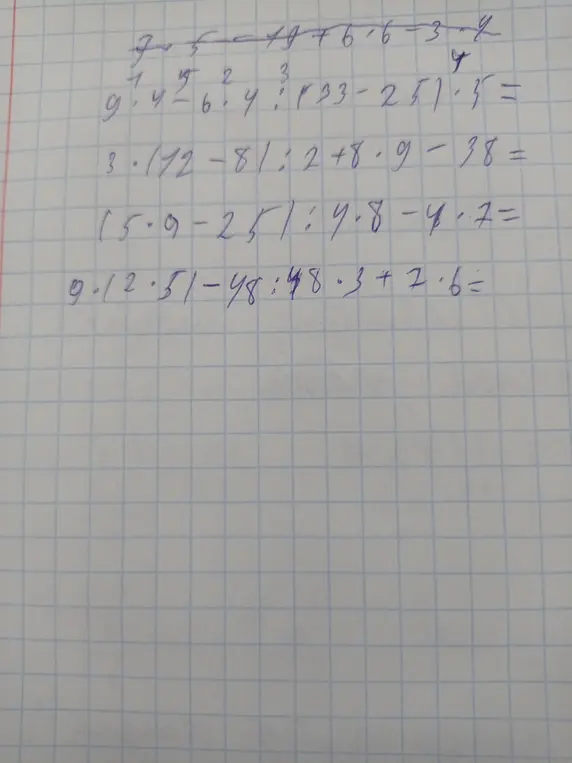 7 · 5 - 19 + 6 · 6 - 3 · 4
1 5 2 3 4
9 · 4 - 6 · 4 : (33 - 25) · 5 =
3 · (12 - 8) : 2 + 8 · 9 - 38 =
(5 · 9 - 25) : 4 · 8 - 4 · 7 =
9 · (2 · 5) - 48 : 48 · 3 + 7 · 6 =